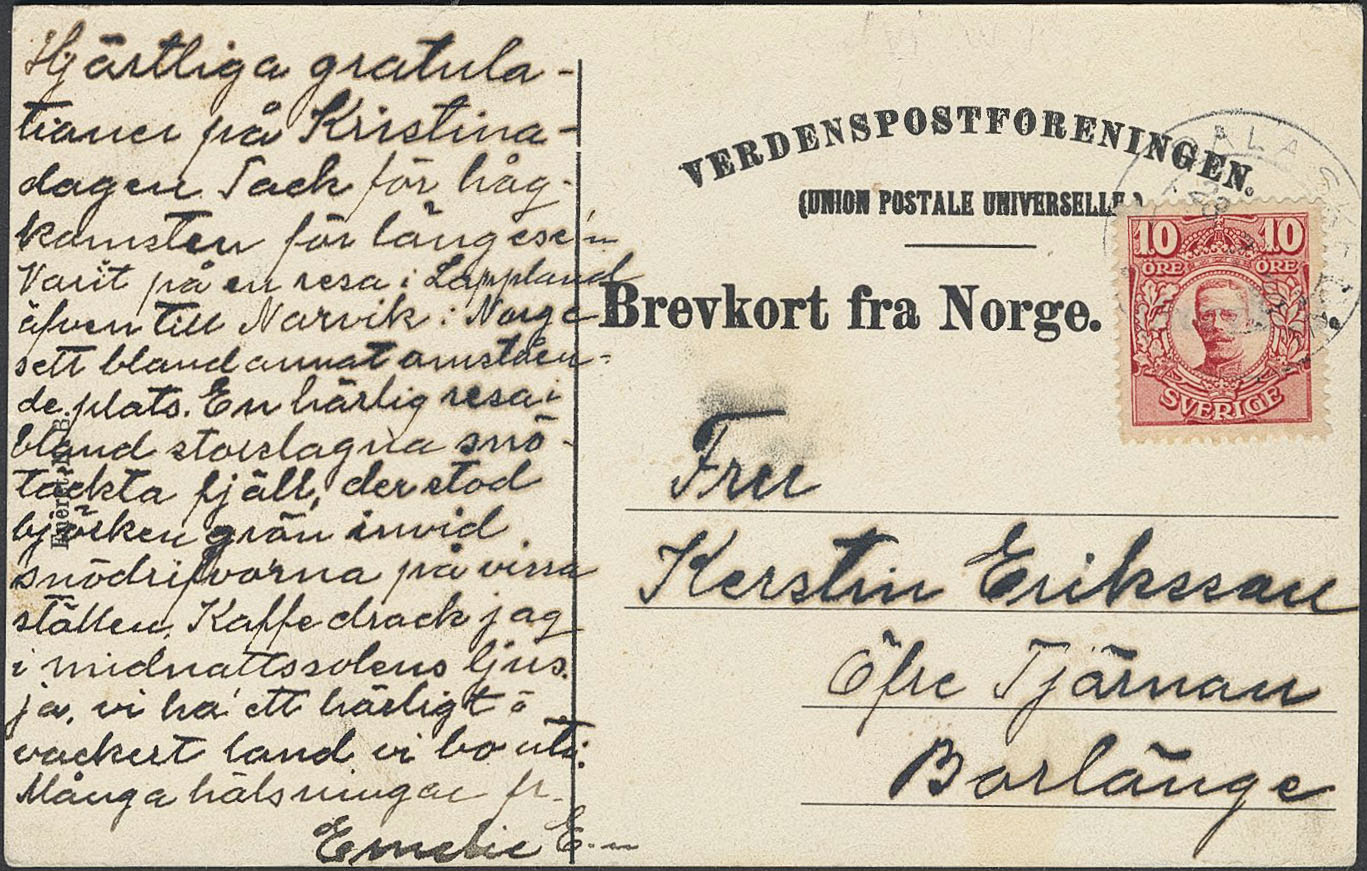 Hjärtliga gratula-
tioner på Kristina-
dagen Tack för håg-
komsten för längese'n
Varit på en resa i Lappland
äfven till Narvik i Norge
sett bland annat omståen-
de plats. En härlig resa i
bland storslagna snö-
täckta fjäll, der stod
björken grön invid
snödrifvorna på vissa
ställen. Kaffe drack jag
i midnattssolens ljus.
ja, vi ha' ett härligt o
vackert land vi bo uti.
Många hälsningar fr.
Emelie E-n
VERDENSPOSTFORENINGEN.
(UNION POSTALE UNIVERSELLE.)
Brevkort fra Norge.
10 10
ÖRE ÖRE
SVERIGE
Fru
Kerstin Eriksson
Öfre Tjärnan
Borlänge